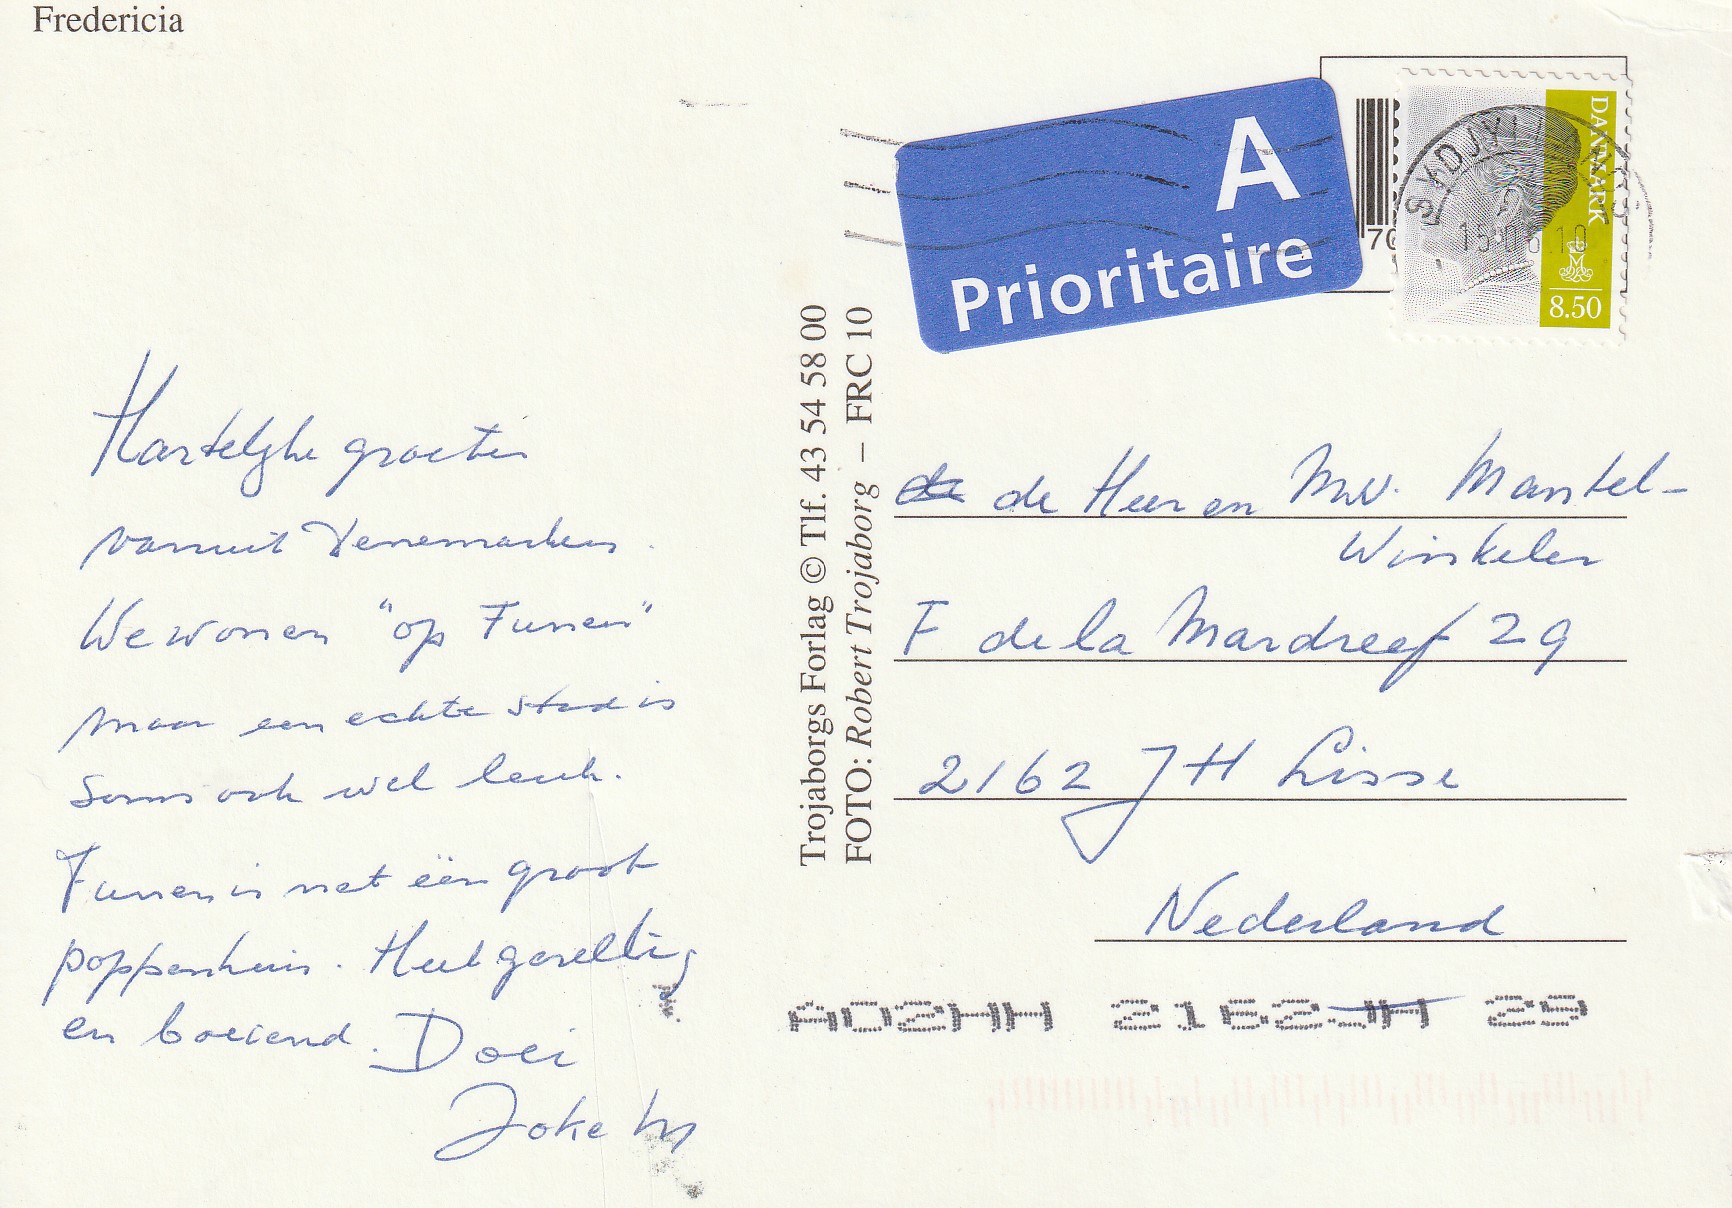 Fredericia
Hartelijke groeten
vanuit Denemarken.
We wonen "op Funen"
maar een echte stad is
soms ook wel leuk.
Funen is net één groot
poppenhuis. Heel gezellig
en boeiend. Doei
Joke
Trojaborgs Forlag © Tlf. 43 54 58 00
FOTO: Robert Trojaborg – FRC 10
A
Prioritaire
DANMARK
8.50
de Heer en Mw. Mantel-
Winkeler
F de la Mardreef 29
2162 JH Lisse
Nederland
A02HH 2162JH 29